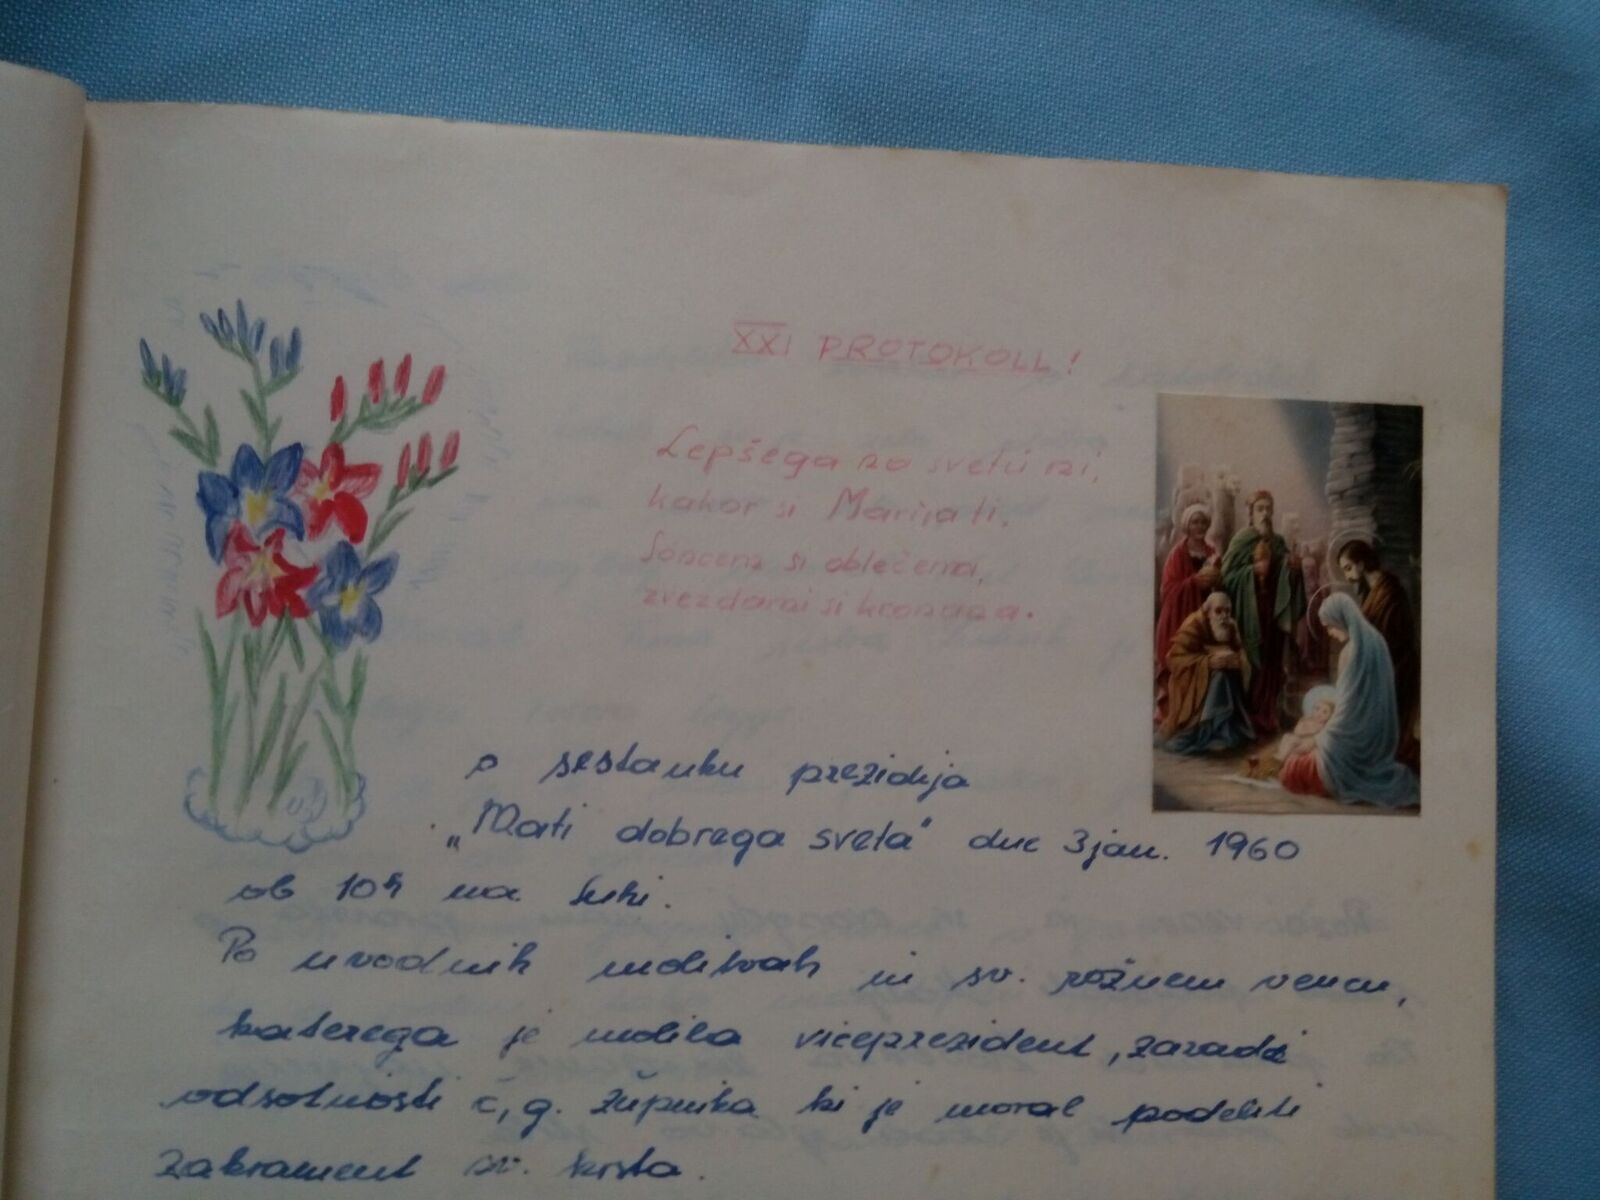 XXI PROTOKOLL!
Lepšega na svetu ni,
kakor si Marija ti.
Soncem si oblečena,
zvezdami si kronana.
o sestanku prezidija
„Mati dobrega sveta" dne 3 jan. 1960
ob 10h na
Po uvodnih molitvah in sv. rožnem vencu,
katerega je molila viceprezident, zaradi
odsotnosti č, g. župnika ki je moral podeliti
zakrament sv. krsta.